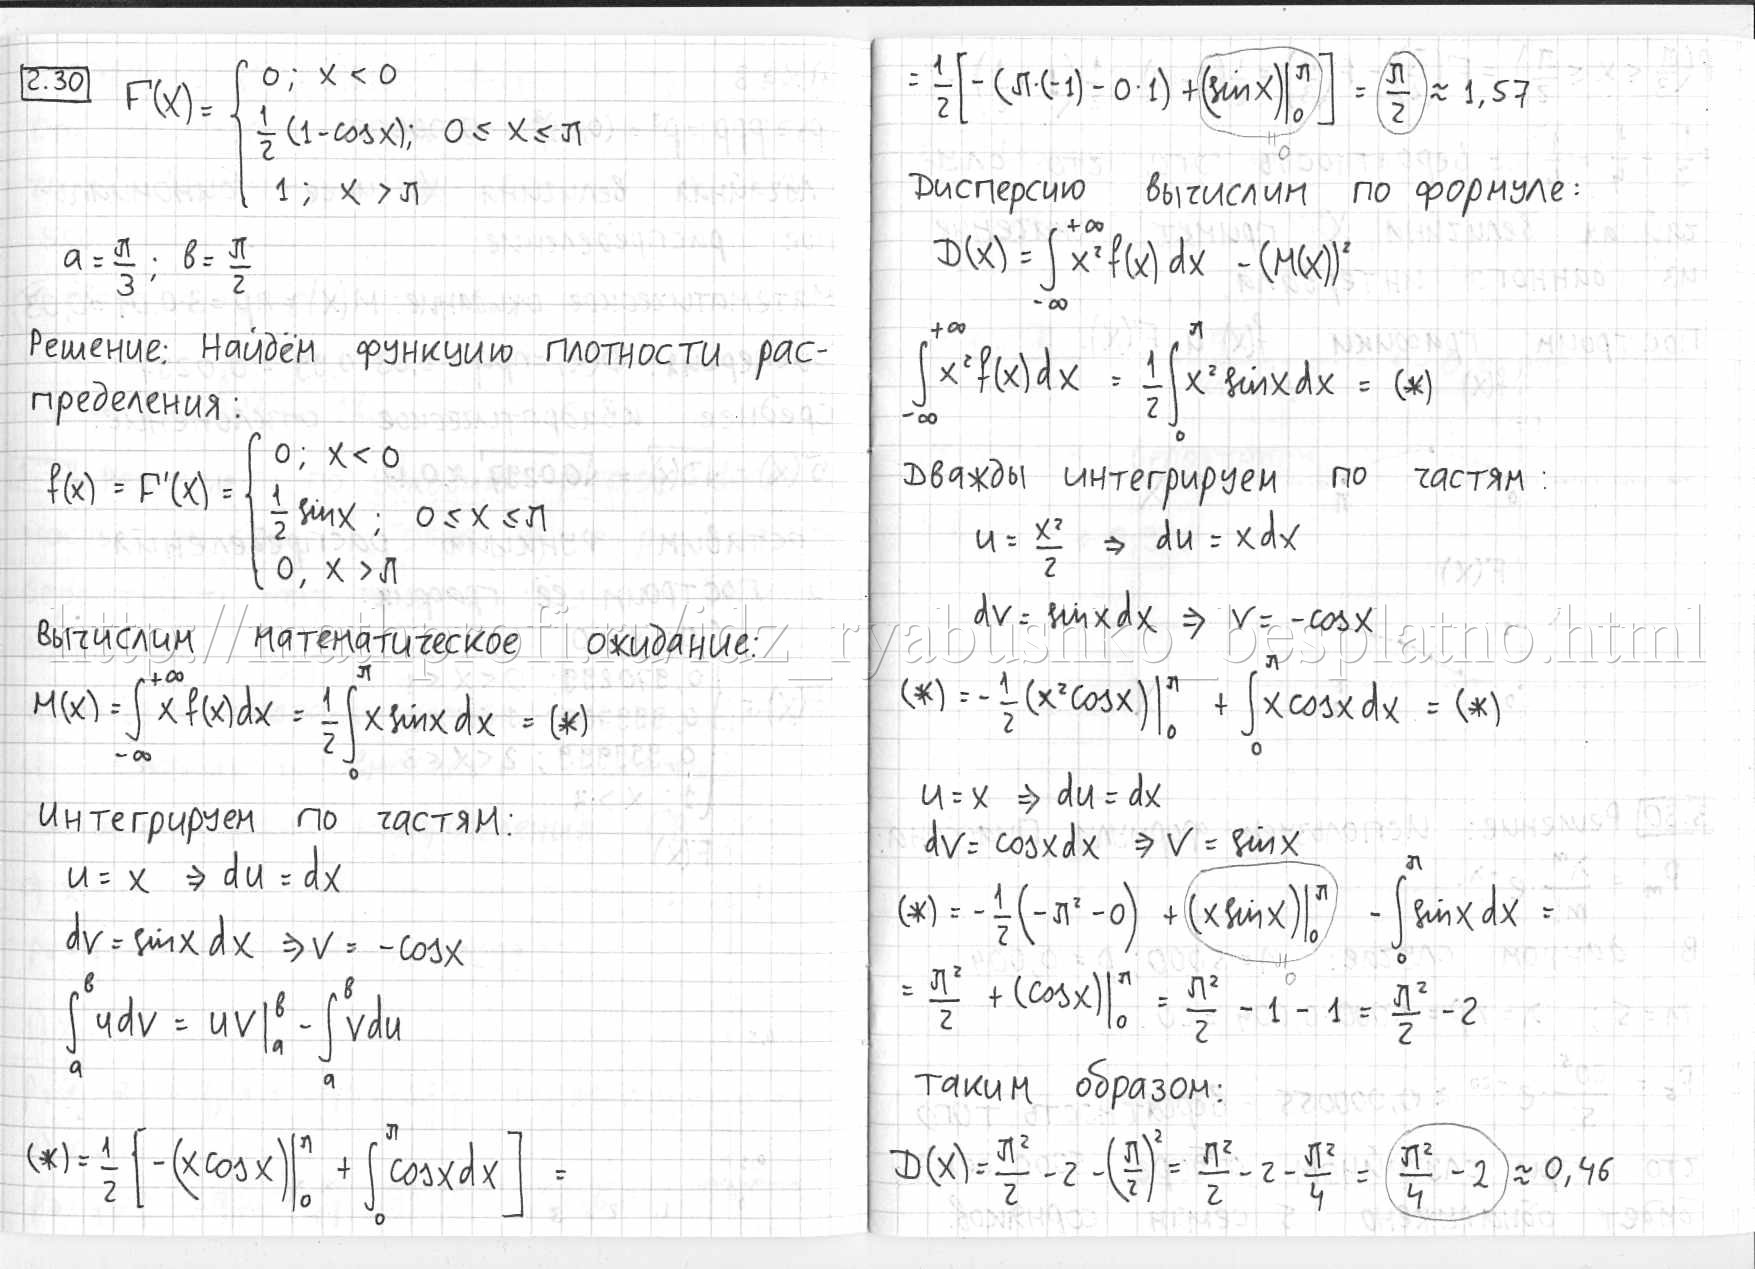 2.30 F(x) = { 0; x < 0
1/2 (1-cosx); 0 ≤ x ≤ π
1; x > π
a = π/3; в = π/2
Решение: Найдём функцию плотности рас-
пределения:
f(x) = F'(x) = { 0; x < 0
1/2 sinx; 0 ≤ x ≤ π
0, x > π
Вычислим математическое ожидание:
M(x) = ∫_{-∞}^{+∞} x f(x)dx = 1/2 ∫_0^π x sinx dx = (*)
Интегрируем по частям:
u = x ⇒ du = dx
dv = sinx dx ⇒ v = -cosx
∫_a^в udv = uv|_a^в - ∫_a^в vdu
(*) = 1/2 [ -(x cosx)|_0^π + ∫_0^π cosx dx ] =
= 1/2 [ -(π·(-1) - 0·1) + (sinx)|_0^π ] = π/2 ≈ 1,57
= 0
Дисперсию вычислим по формуле:
D(x) = ∫_{-∞}^{+∞} x² f(x) dx - (M(x))²
∫_{-∞}^{+∞} x² f(x) dx = 1/2 ∫_0^π x² sinx dx = (*)
Дважды интегрируем по частям:
u = x²/2 ⇒ du = xdx
dv = sinxdx ⇒ v = -cosx
http://mathprofi.ru/idz_ryabushko_besplatno.html
(*) = -1/2 (x² cosx)|_0^π + ∫_0^π x cosx dx = (*)
u = x ⇒ du = dx
dv = cosxdx ⇒ v = sinx
(*) = -1/2 (-π² - 0) + (x sinx)|_0^π - ∫_0^π sinx dx =
= 0
= π²/2 + (cosx)|_0^π = π²/2 - 1 - 1 = π²/2 - 2
Таким образом:
D(x) = π²/2 - 2 - (π/2)² = π²/2 - 2 - π²/4 = π²/4 - 2 ≈ 0,46